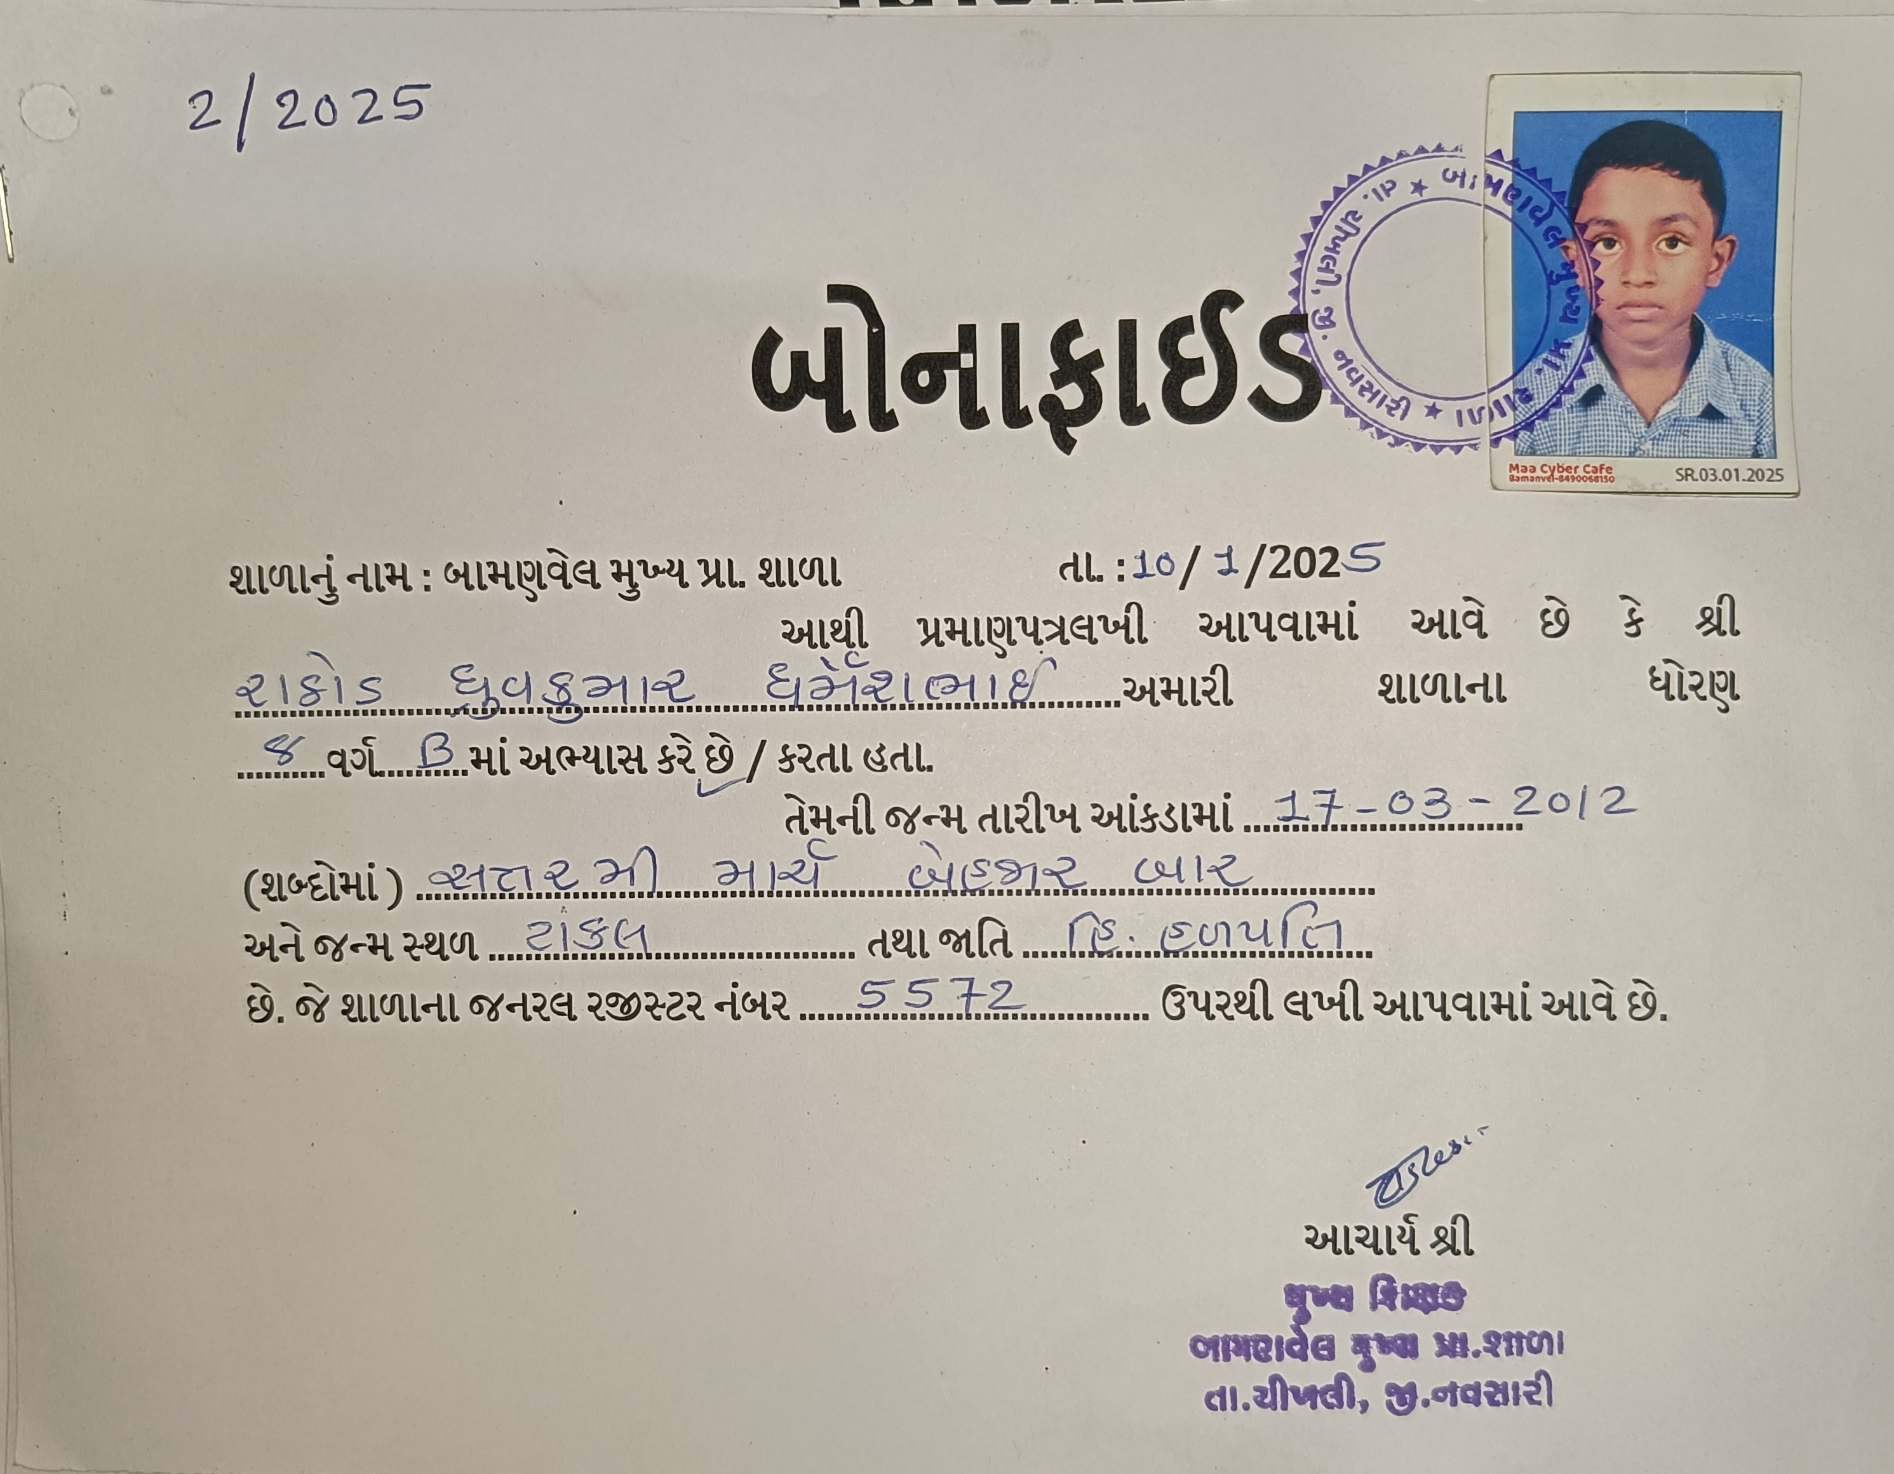 2/2025
બામણવેલ મુખ્ય પ્રા. શાળા ★ તા. ચીખલી, જી. નવસારી ★
Maa Cyber Cafe
Bamanvel-8490068150
SR.03.01.2025
બોનાફાઈડ
શાળાનું નામ : બામણવેલ મુખ્ય પ્રા. શાળા તા. : 10/ 1 /2025
આથી પ્રમાણપત્રલખી આપવામાં આવે છે કે શ્રી
રાઠોડ ધ્રુવકુમાર ધર્મેશભાઈ અમારી શાળાના ધોરણ
8 વર્ગ B માં અભ્યાસ કરે છે / કરતા હતા.
તેમની જન્મ તારીખ આંકડામાં 17-03-2012
(શબ્દોમાં ) સત્તરમી માર્ચ બેહજાર બાર
અને જન્મ સ્થળ ટાંકલ તથા જાતિ હિ. હળપતિ
છે. જે શાળાના જનરલ રજીસ્ટર નંબર 5572 ઉપરથી લખી આપવામાં આવે છે.
આચાર્ય શ્રી
મુખ્ય શિક્ષક
બામણવેલ મુખ્ય પ્રા.શાળા
તા.ચીખલી, જી.નવસારી